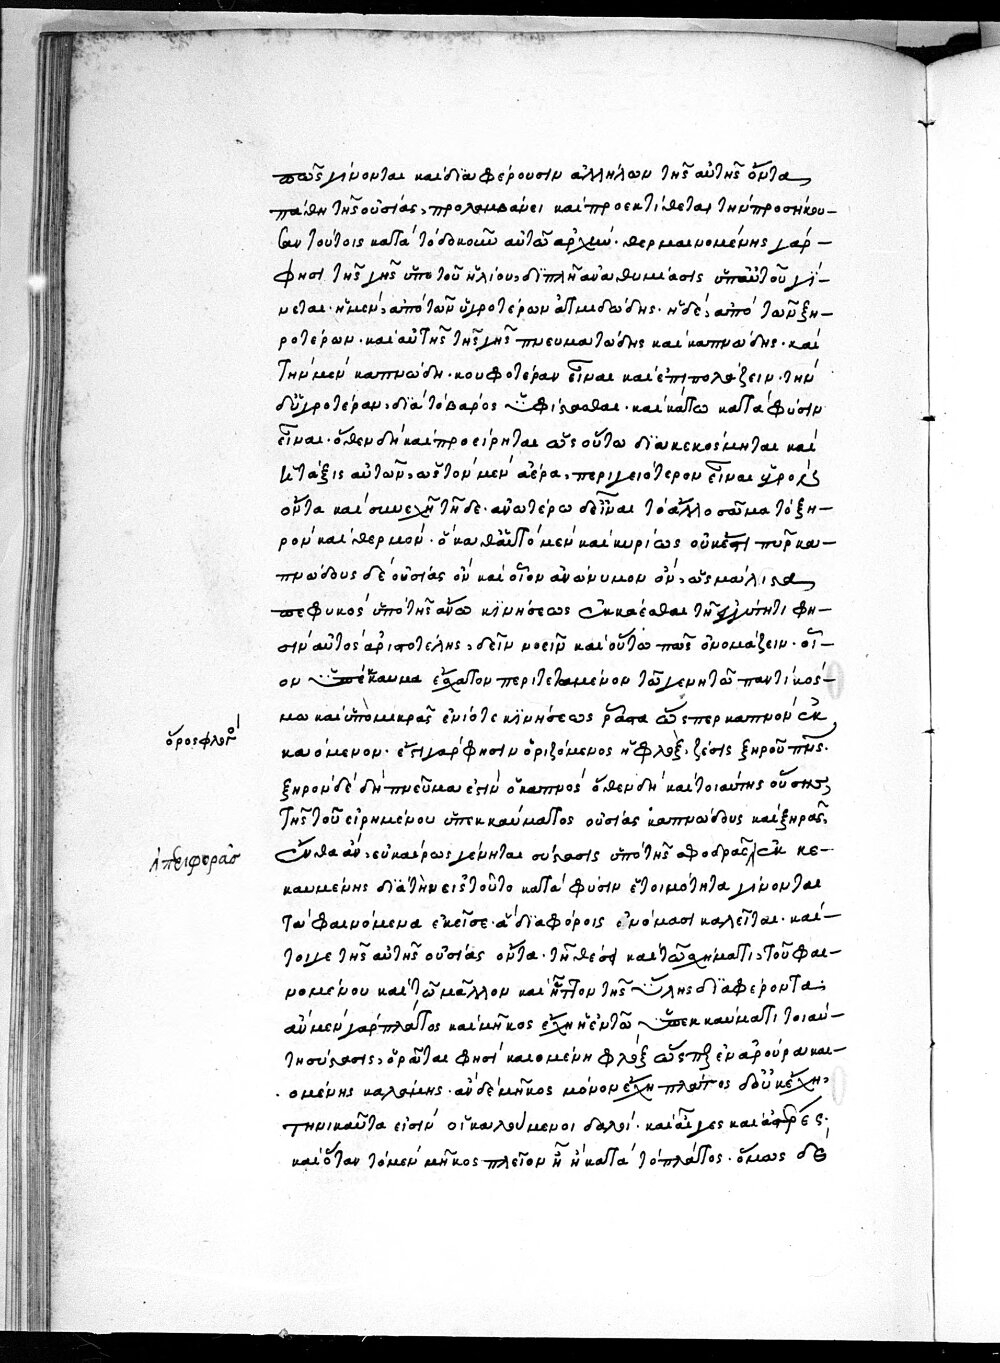 πῶς γίνονται καὶ διαφέρουσιν ἀλλήλων τῆς αὐτῆς ὄντα
πάθη τῆς οὐσίας, προλαμβάνει καὶ προεκτίθεται τὴν προσήκου-
σαν τούτοις κατὰ τὸ δοκοῦν αὐτῶ ἀρχήν· θερμαινομένης γάρ
φησι τῆς γῆς ὑπὸ τοῦ ἡλίου, διπλῆ ἀναθυμίασις ὑπ' αὐτοῦ γί-
νεται· ἡ μὲν, ἀπὸ τῶν ὑγροτέρων ἀτμιδώδης· ἡ δὲ, ἀπὸ τῶν ξη-
ροτέρων· καὶ αὐτῆς τῆς γῆς πνευματώδης καὶ καπνώδης· καὶ
τὴν μὲν καπνώδη· κουφοτέραν εἶναι καὶ ἐπιπολάζειν· τὴν
δ' ὑγροτέραν, διὰ τὸ βάρος ὑφίστασθαι· καὶ κάτω κατὰ φύσιν
εἶναι· ὅθεν δὴ καὶ προείρηται ὡς οὕτω διακεκόσμηται καὶ
τέτακται αὐτῶν, ὡς τὸν μὲν ἀέρα, περιγειότερον εἶναι ὑγρόν
ὄντα καὶ συνεχῆ τῆδε· ἀνωτέρω δ' εἶναι τὸ ἄλλο σῶμα τὸ ξη-
ρὸν καὶ θερμόν· ὃ καθ' αὑτὸ μὲν καὶ κυρίως οὐκ ἔστι πῦρ κα-
πνώδους δὲ οὐσίας ὂν καὶ οἷον ἀνώνυμον ὂν, ὡς μάλιστα
πεφυκὸς ὑπὸ τῆς ἄνω κινήσεως ἐκκαίεσθαι τῆ φησὶν
αὐτὸς ἀριστοτέλης, δεῖν νοεῖν καὶ οὕτω πως ὀνομάζειν· οἷ-
ον ὑπέκκαυμα ἔσχατον περιτεταμένον τῶ γεννητῶ παντὶ κόσ-
μω καὶ ὑπὸ μικρᾶς ἐνίοτε κινήσεως ῥᾶστα ὥσπερ καπνὸν ἐκ
καιόμενον· ἔστι γάρ φησιν ὁριζόμενος ἡ φλὸξ, ζέσις ξηροῦ πνς·
ξηρὸν δὲ δὴ πνεῦμα ἐστὶν ὁ καπνός· ὅθεν δὴ καὶ τοιαύτης οὔσης
τῆς τοῦ εἰρημένου ὑπεκκαύματος οὐσίας καπνώδους καὶ ξηρᾶς,
ἔνθα ἂν, εὐκαίρως γένηται σύστασις ὑπὸ τῆς σφοδρᾶς ἐκ κε-
καυμένης διὰ τὴν εἰς τοῦτο κατὰ φύσιν ἑτοιμότητα γίνονται
τὰ φαινόμενα ἐκεῖσε· ἃ διαφόροις ὀνόμασι καλεῖται· καί-
τοιγε τῆς αὐτῆς οὐσίας ὄντα· τῆ θέσει καὶ τῶ σχήματι, τοῦ φαι-
νομένου καὶ τῶ μᾶλλον καὶ ἧττον τῆς ὕλης διαφέροντα·
ἂν μὲν γὰρ πλάτος καὶ μῆκος ἔχη ἡ ἐν τῶ ὑπεκκαύματι τοιαύ-
τη σύστασις, ὁρᾶται φησὶ καιομένη φλὸξ ὥσπερ ἐν ἀρούρα και-
ομένης καλάμης· ἂν δὲ μῆκος μόνον ἔχη πλάτος δ' οὐκ ἔχη,
τηνικαῦτα εἰσὶν οἱ καλούμενοι δαλοί· καὶ αἶγες καὶ ἀστέρες·
καὶ ὅταν τὸ μὲν μῆκος πλεῖον ἦ ἢ κατὰ τὸ πλάτος· ὅμως δὲ
ὅρος φλογός